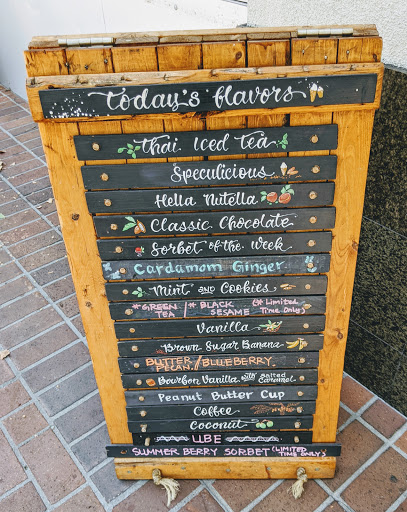 today's flavors
Thai Iced Tea
Speculicious
Hella Nutella
Classic Chocolate
Sorbet of the Week
Cardamom Ginger
Mint and Cookies
*GREEN TEA / *BLACK SESAME (*Limited Time Only)
Vanilla
Brown Sugar Banana
BUTTER PECAN / BLUEBERRY
Bourbon Vanilla with Salted Caramel
Peanut Butter Cup
Coffee
Coconut
UBE
SUMMER BERRY SORBET (LIMITED TIME ONLY)